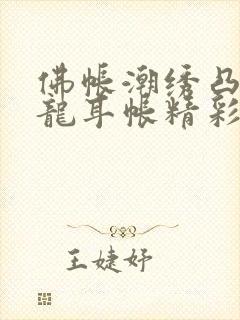 佛帐潮绣凸
龍耳帐精彩
王婕妤